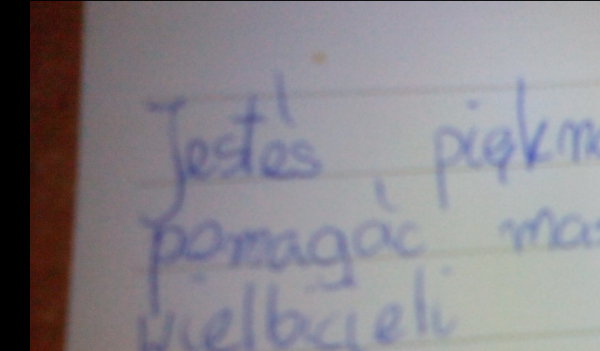 Jesteś piękn
pomagać mas
wielbicieli